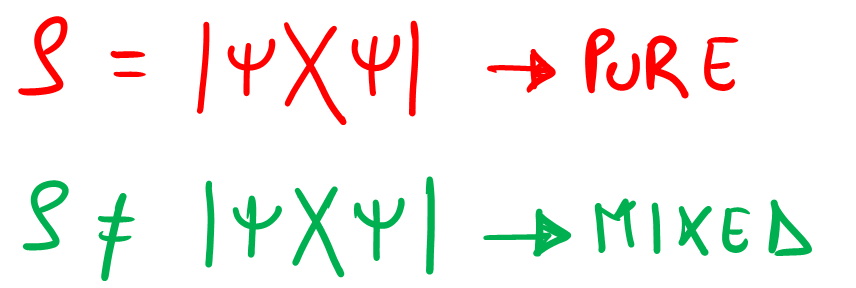 ρ = |ψ⟩⟨ψ| → PURE
ρ ≠ |ψ⟩⟨ψ| → MIXED